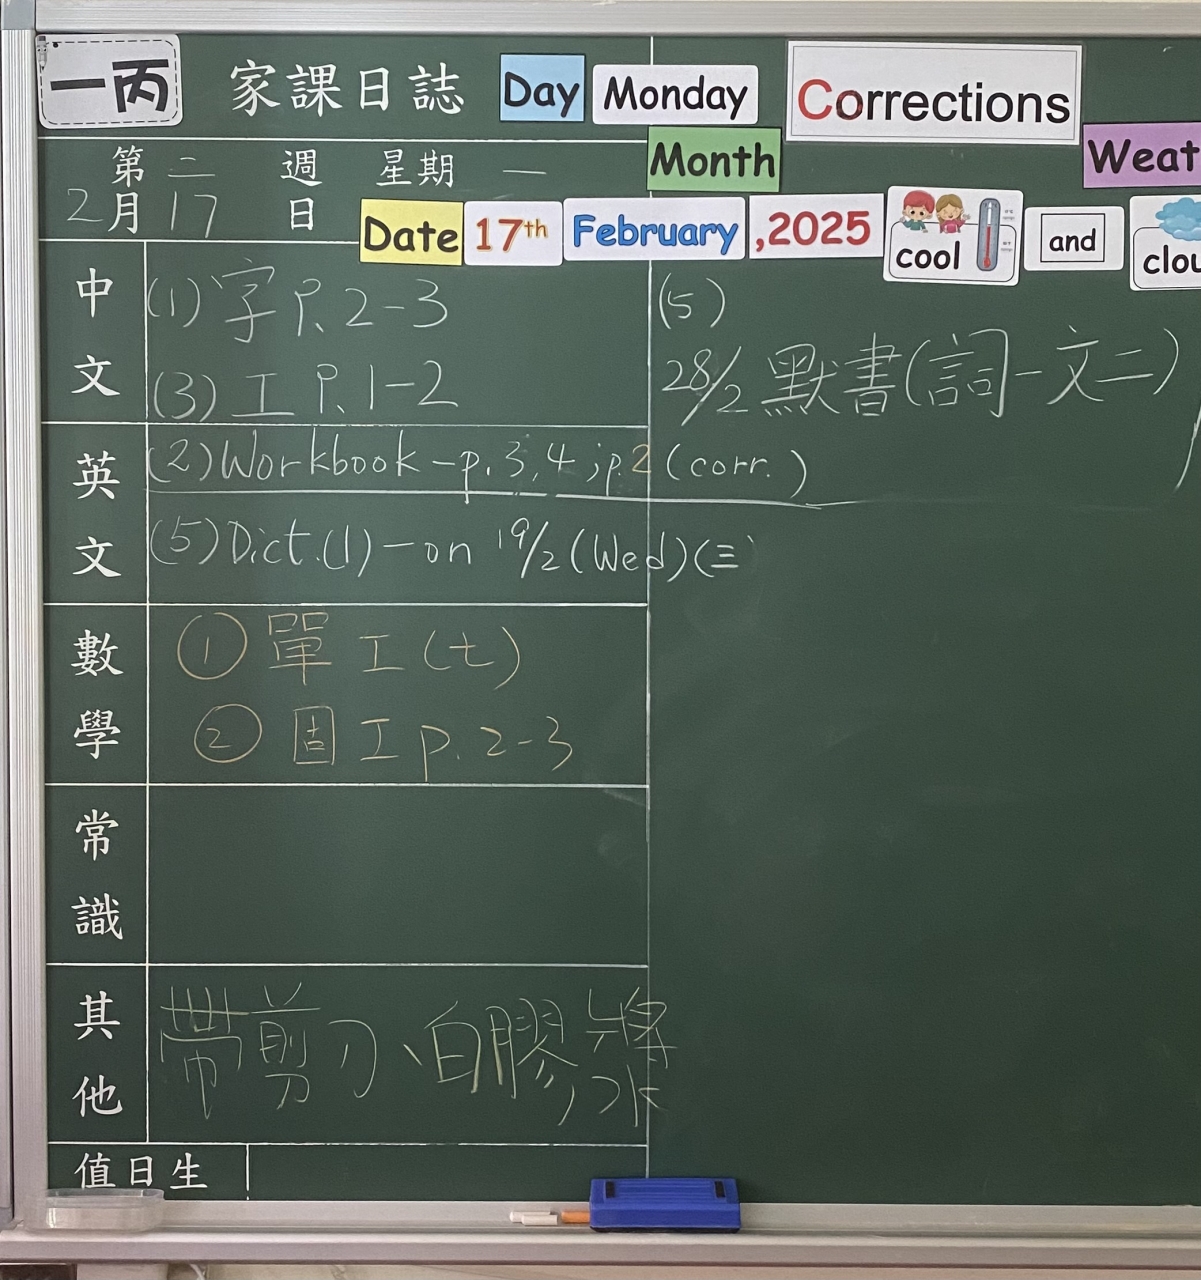 一丙 家課日誌 Day Monday Corrections
第二週 星期一 Month Weat
2月17日 Date 17th February ,2025 cool and clou
中文
(1) 字 P. 2-3
(3) 工 P. 1-2
(5)
28/2 默書(詞一文二)
英文
(2) Workbook - p. 3, 4 ; p. 2 (corr.)
(5) Dict. (1) - on 19/2 (Wed) (三)
數學
① 單工 (七)
② 固工 p. 2-3
常識
其他
帶剪刀、白膠漿
值日生